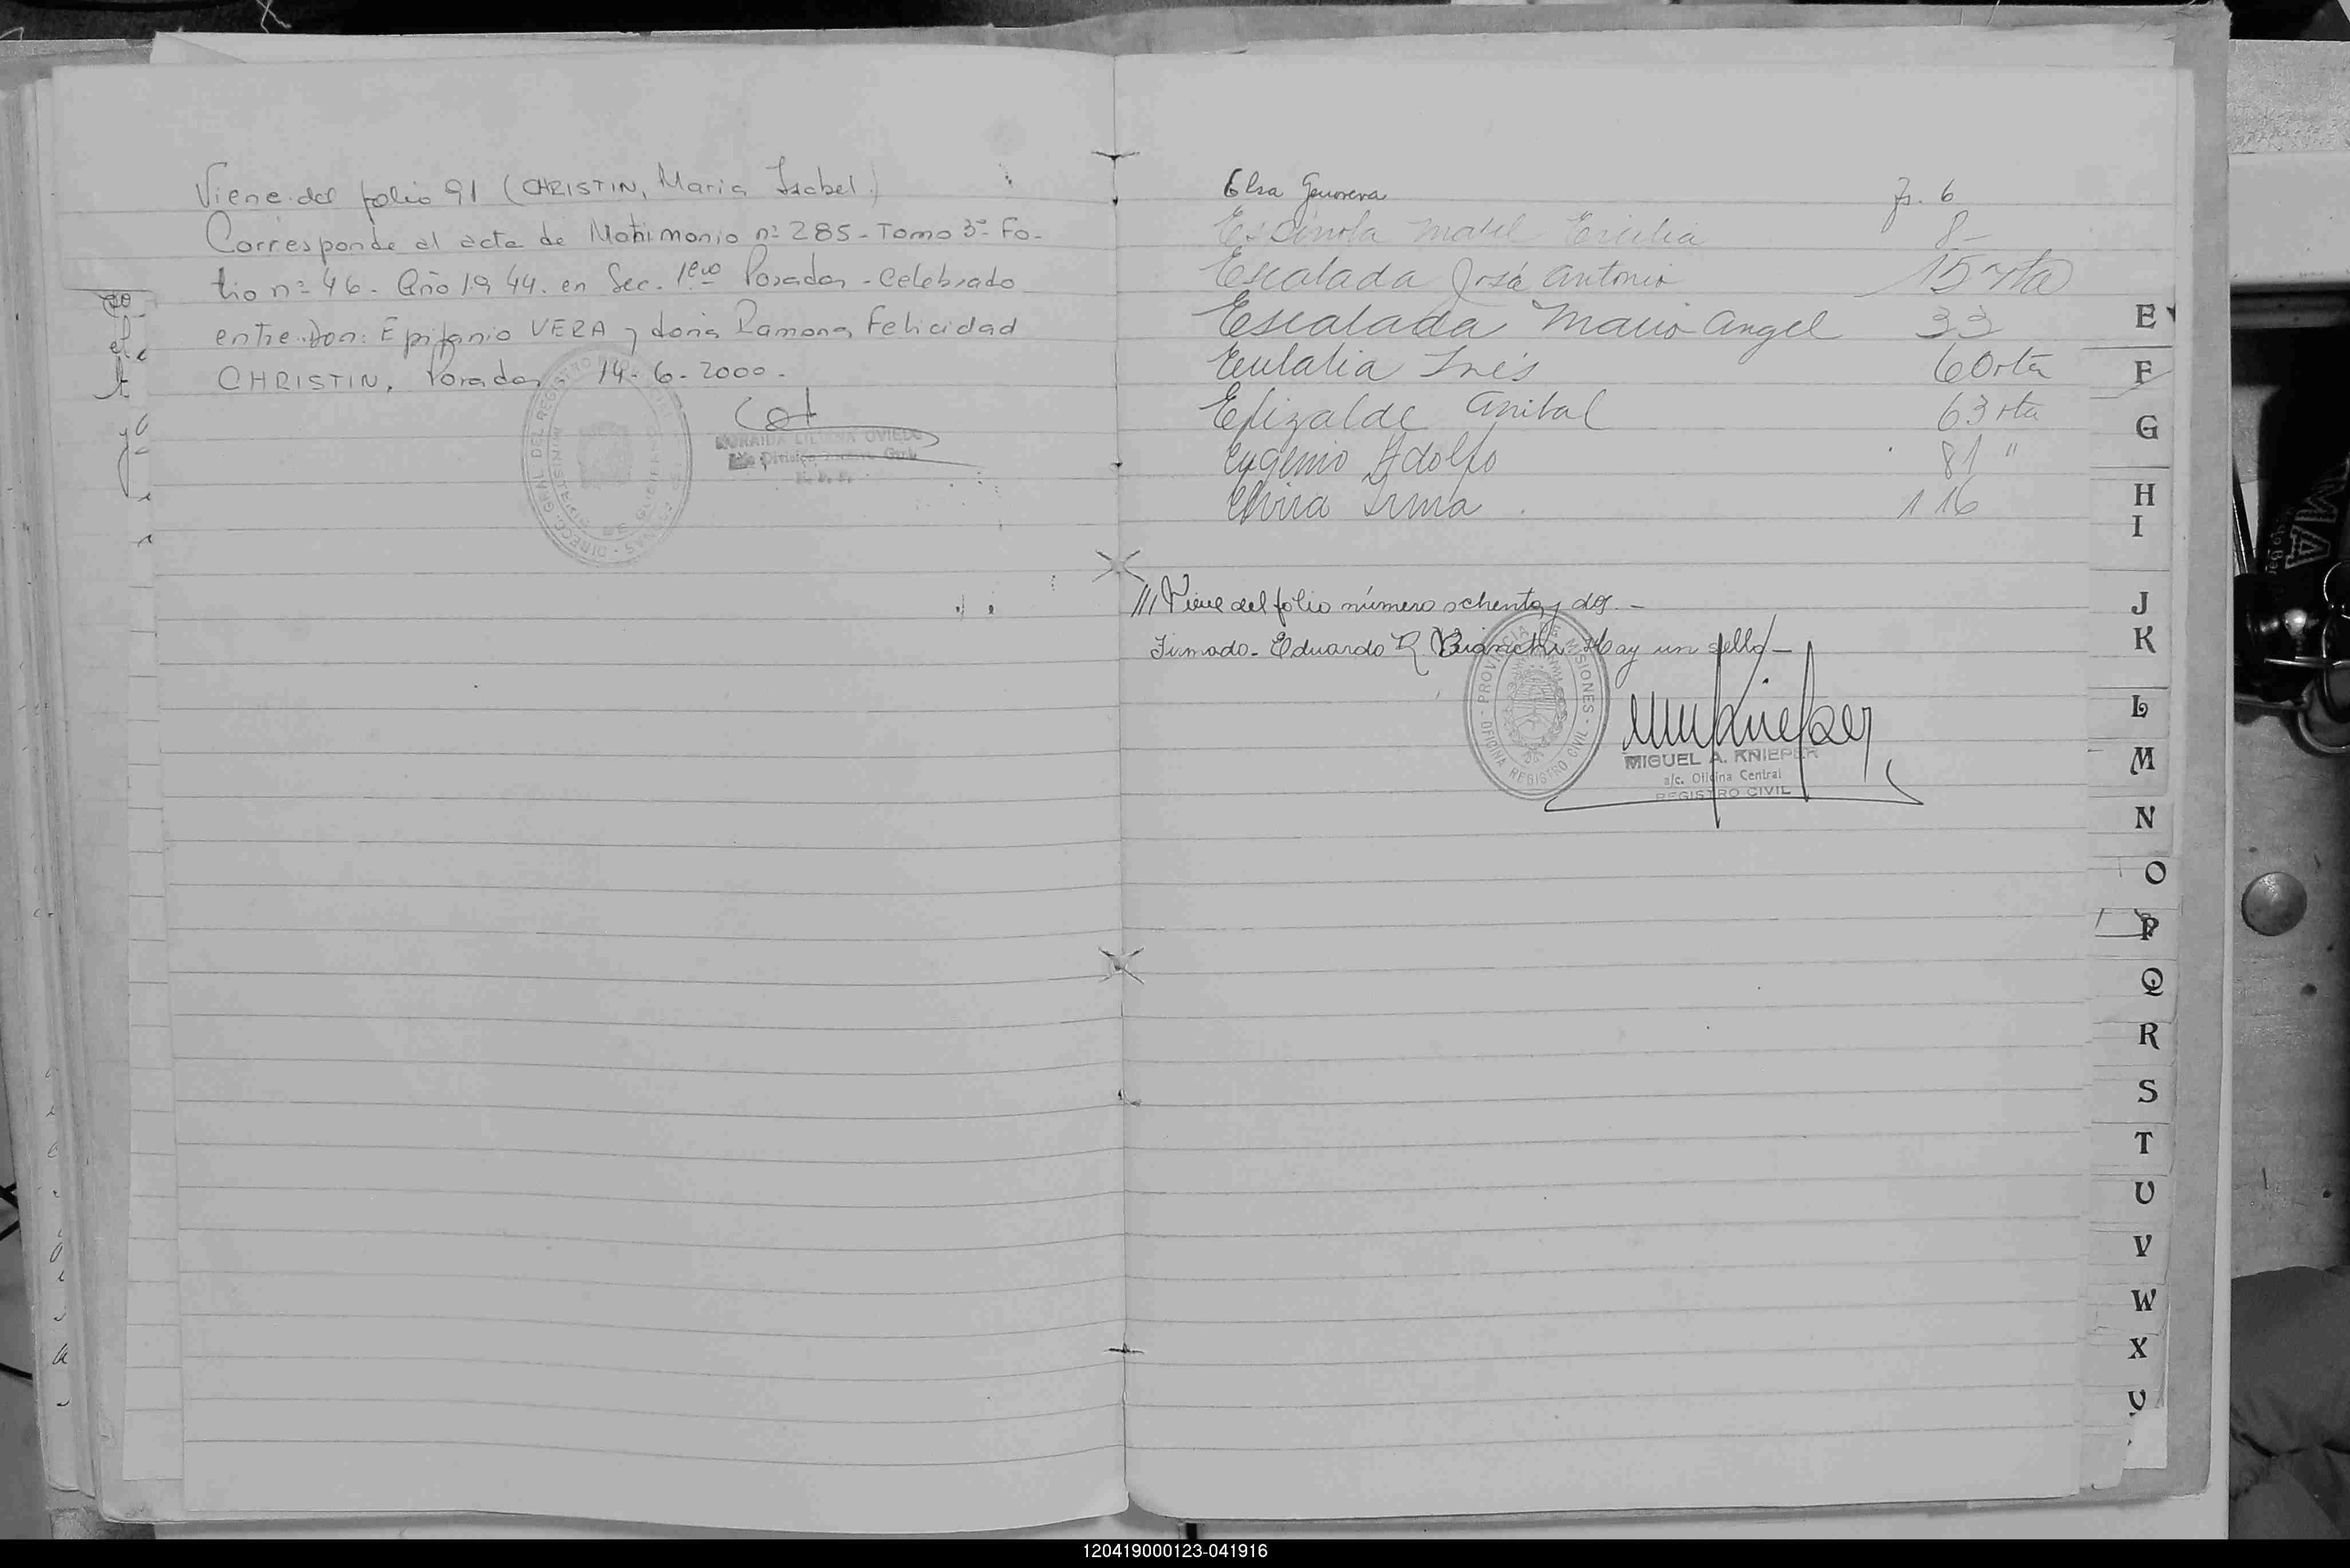 Viene del folio 91 (CHRISTIN, Maria Isabel.)
Corresponde al acta de Matrimonio nº 285 - Tomo 3º - Fo-
lio nº 46 - Año 1944. en Sec. 1era Posadas - Celebrado
entre Don: Epifanio VERA y doña Ramona Felicidad
CHRISTIN. Posadas, 14-6-2000.-
LILIANA OVIEDO
Elsa Genoveva fs. 6
Espínola Mabel Ercilia 8-
Escalada José Antonio 15 vta
Escalada Mario Angel 33
Eulalia Inés 60 vta
Elizalde Anibal 63 vta
Eugenio Adolfo 81 "
Elvira Irma 116
/// Viene del folio número ochenta y dos. -
Firmado - Eduardo R Bianchi. Hay un sello -
PROVINCIA DE MISIONES - OFICINA REGISTRO CIVIL -
MIGUEL A. KNIEPER
a/c. Oficina Central
REGISTRO CIVIL
E
F
G
H
I
J
K
L
M
N
O
P
Q
R
S
T
U
V
W
X
120419000123-041916